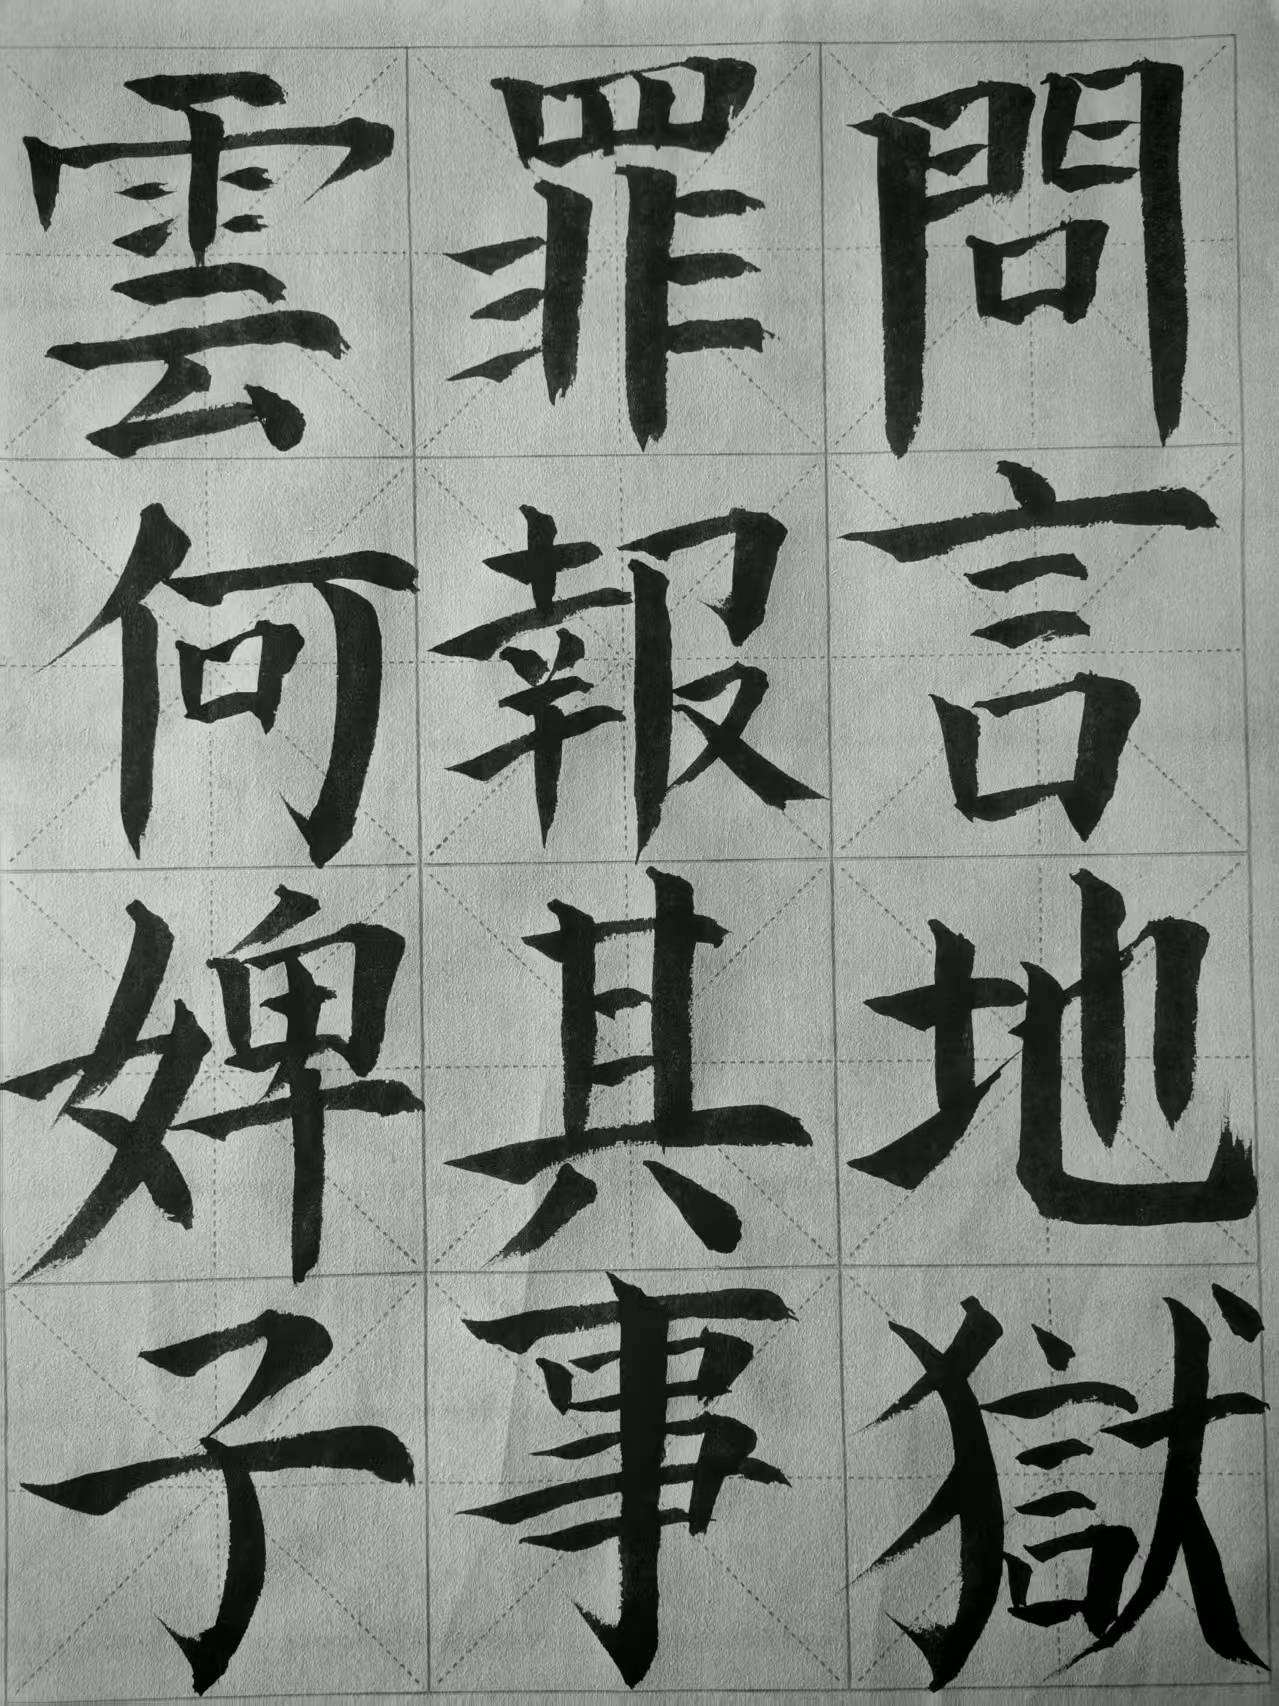 問言地獄
罪報其事
雲何婢子